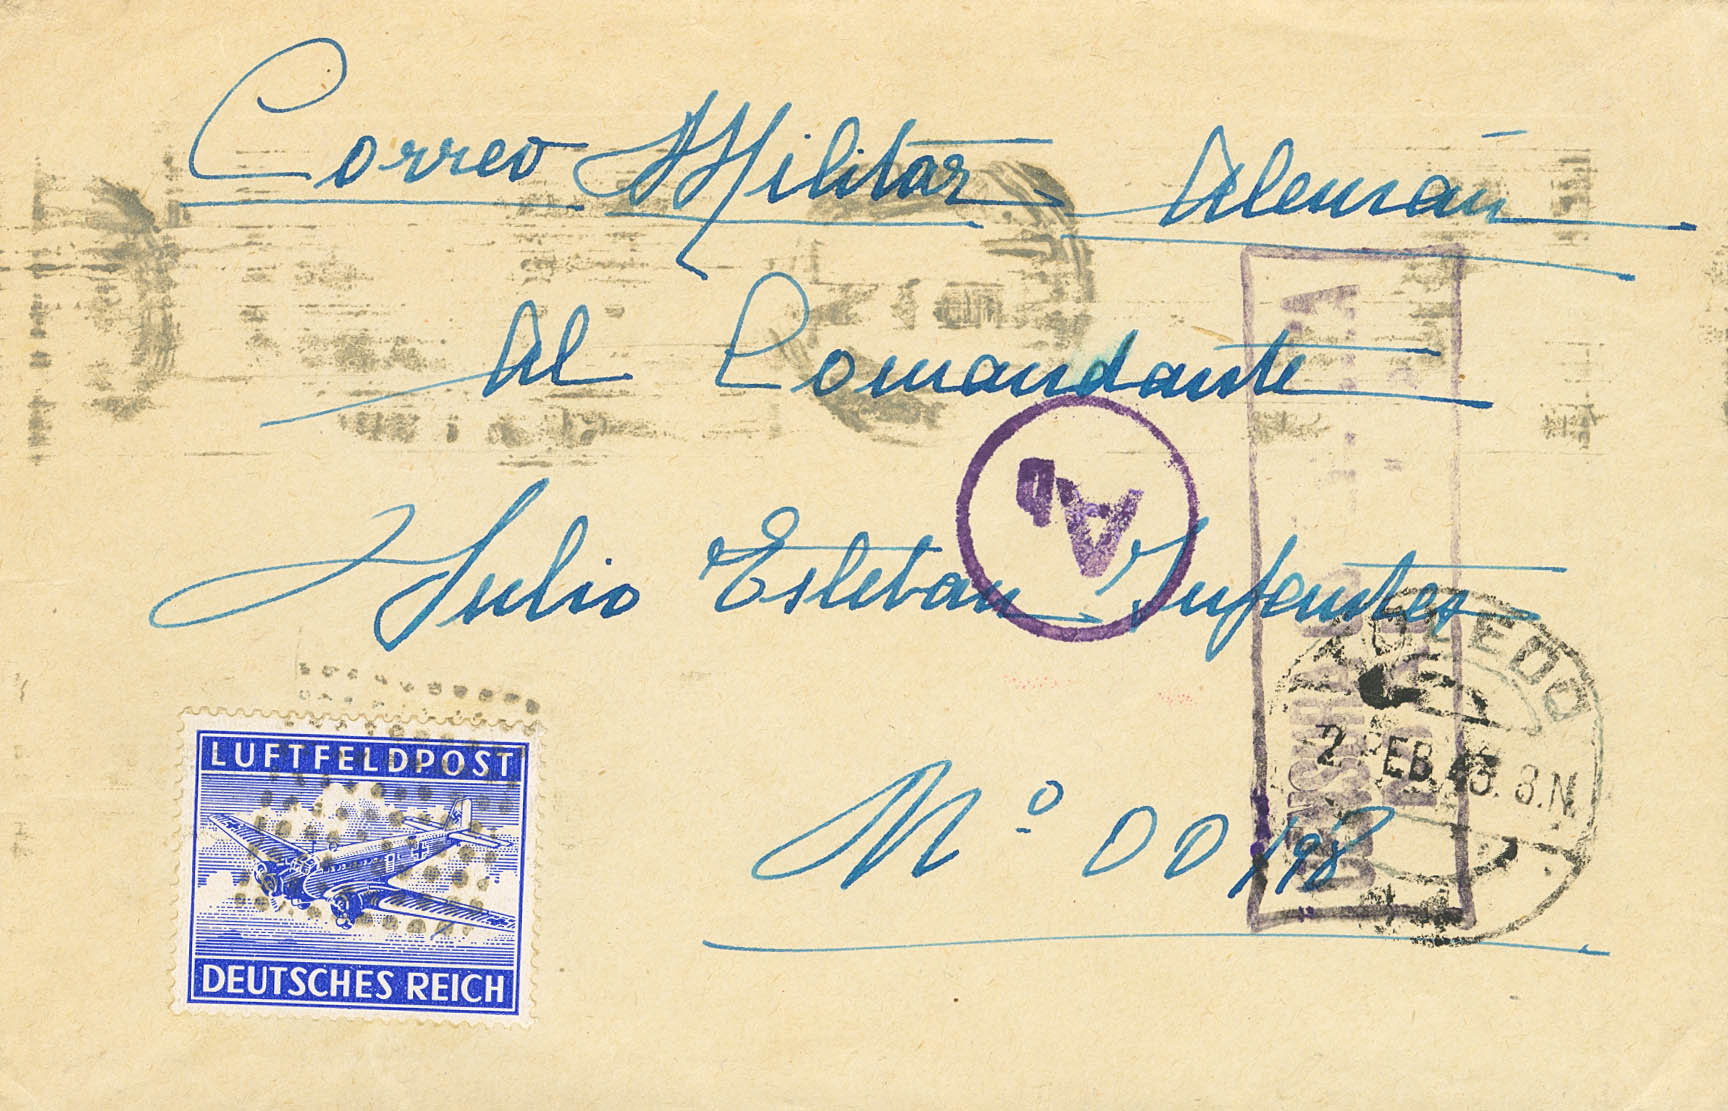 Correo Militar Alemán
Al Comandante
Julio Esteban Infantes
Nº 00198
Ab
TOLEDO
2 FEB. 43. 8.N
LUFTFELDPOST
DEUTSCHES REICH